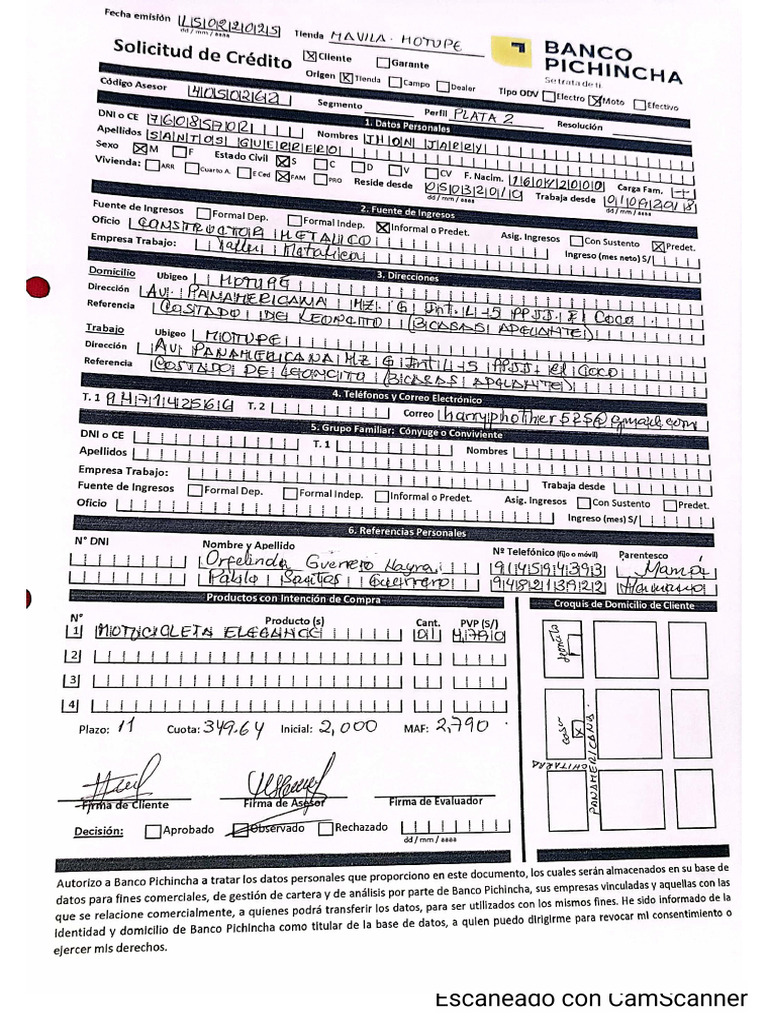 Fecha emisión 15022025 Tienda MAVILA - MOTUPE
dd / mm / aaaa
BANCO PICHINCHA
Se trata de ti.
Solicitud de Crédito ☒ Cliente ☐ Garante
Origen ☒ Tienda ☐ Campo ☐ Dealer Tipo ODV ☐ Electro ☒ Moto ☐ Efectivo
Código Asesor 4050262 Segmento Perfil PLATA 2 Resolución
1. Datos Personales
DNI o CE 76085702
Apellidos SANTOS GUERRERO Nombres JHON JARRY
Sexo ☒ M ☐ F Estado Civil ☒ S ☐ C ☐ D ☐ V ☐ CV F. Nacim. Carga Fam.
Vivienda: ☐ ARR ☐ Cuarto A. ☐ E Ced ☒ FAM ☐ PRO Reside desde 05032010 Trabaja desde 01092018
dd / mm / aaaa dd / mm / aaaa
2. Fuente de Ingresos
Fuente de Ingresos ☐ Formal Dep. ☐ Formal Indep. ☒ Informal o Predet. Asig. Ingresos ☐ Con Sustento ☒ Predet.
Oficio CONSTRUCTOR METALICO Ingreso (mes neto) S/
Empresa Trabajo: Taller Metalica
3. Direcciones
Domicilio Ubigeo MOTUPE
Dirección AV. PANAMERICANA MZ. G Int. L-5 PPJJ. El Coco
Referencia COSTADO DE LEONCITO (3 CASAS ADELANTE)
Trabajo Ubigeo MOTUPE
Dirección AV PANAMERICANA MZ G Int L-5 PPJJ. El COCO
Referencia COSTADO DE LEONCITO (3 CASAS ADELANTE)
4. Teléfonos y Correo Electrónico
T. 1 T. 2 Correo
5. Grupo Familiar: Cónyuge o Conviviente
DNI o CE T. 1 Nombres
Apellidos
Empresa Trabajo: Trabaja desde
Fuente de Ingresos ☐ Formal Dep. ☐ Formal Indep. ☐ Informal o Predet. Asig. Ingresos ☐ Con Sustento ☐ Predet.
Oficio Ingreso (mes) S/
6. Referencias Personales
N° DNI Nombre y Apellido Nº Telefónico (fijo o móvil) Parentesco
Orfelinda Guerrero Nayra 914594393 Mamá
Pablo Santos Guerrero 948213922 Hermano
Productos con Intención de Compra Croquis de Domicilio de Cliente
N° Producto (s) Cant. PVP (S/)
1 MOTOCICLETA ELEGANCE 01 4790
2
3
4
Plazo: 11 Cuota: 349.64 Inicial: 2,000 MAF: 2,790
leoncito
casa
PANAMERICANA
Firma de Cliente Firma de Asesor Firma de Evaluador
Decisión: ☐ Aprobado ☐ Observado ☐ Rechazado
dd / mm / aaaa
Autorizo a Banco Pichincha a tratar los datos personales que proporciono en este documento, los cuales serán almacenados en su base de
datos para fines comerciales, de gestión de cartera y de análisis por parte de Banco Pichincha, sus empresas vinculadas y aquellas con las
que se relacione comercialmente, a quienes podrá transferir los datos, para ser utilizados con los mismos fines. He sido informado de la
identidad y domicilio de Banco Pichincha como titular de la base de datos, a quien puedo dirigirme para revocar mi consentimiento o
ejercer mis derechos.
Escaneado con CamScanner